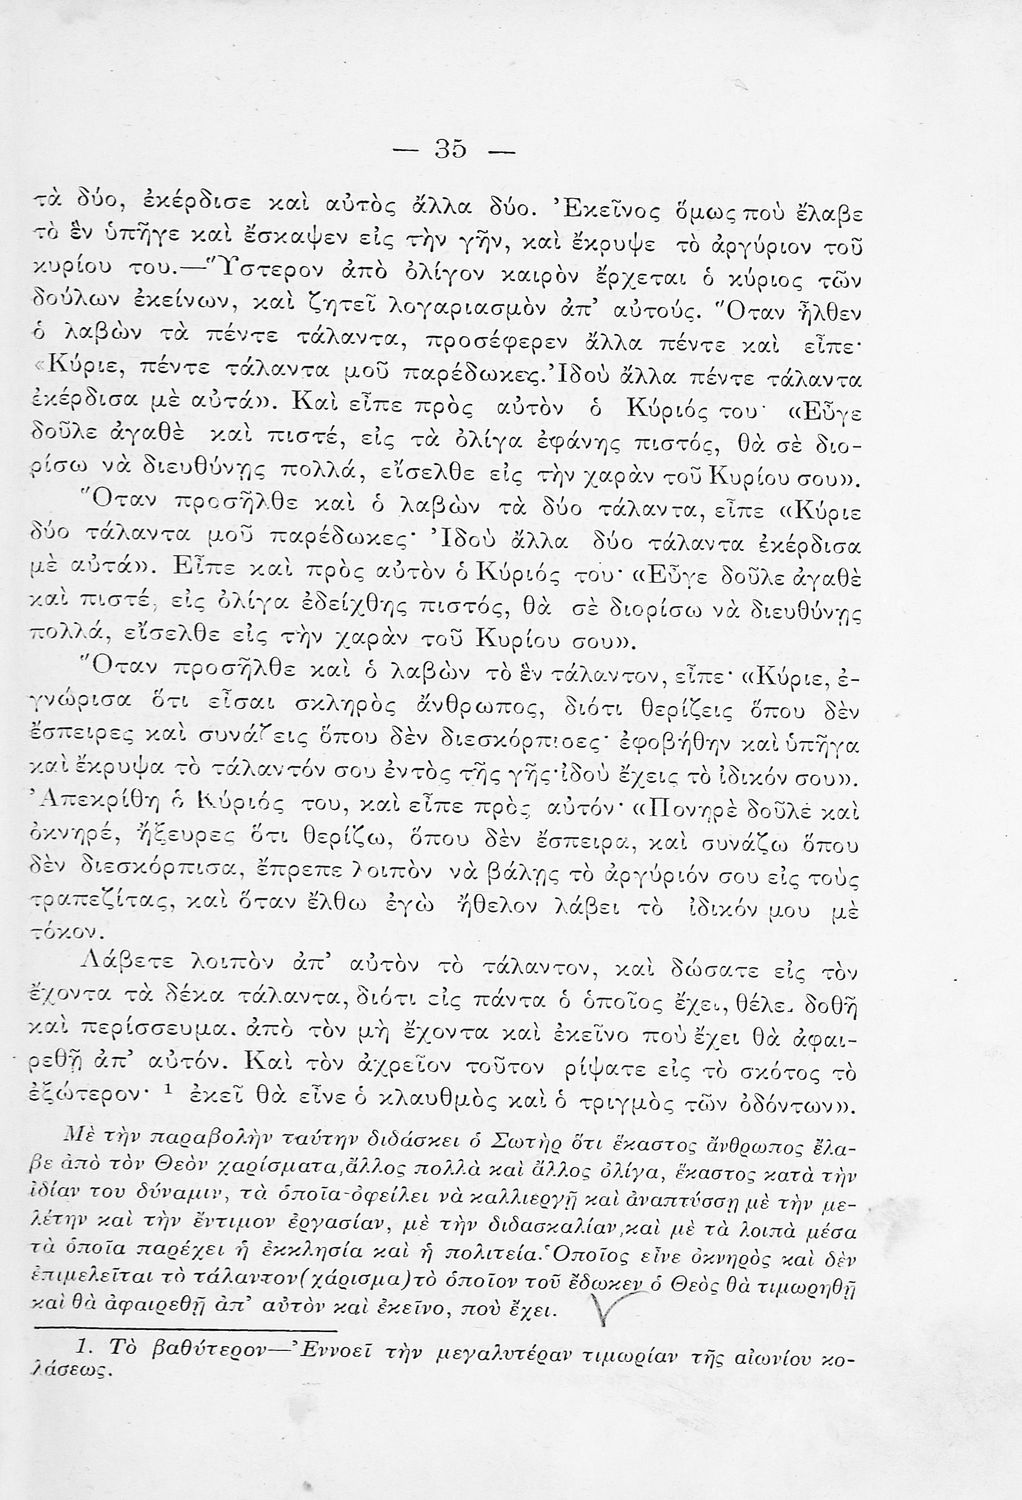 — 35 —
τὰ δύο, ἐκέρδισε καὶ αὐτὸς ἄλλα δύο. Ἐκεῖνος ὅμως ποὺ ἔλαβε
τὸ ἓν ὑπῆγε καὶ ἔσκαψεν εἰς τὴν γῆν, καὶ ἔκρυψε τὸ ἀργύριον τοῦ
κυρίου του.—Ὕστερον ἀπὸ ὀλίγον καιρὸν ἔρχεται ὁ κύριος τῶν
δούλων ἐκείνων, καὶ ζητεῖ λογαριασμὸν ἀπ’ αὐτούς. Ὅταν ἦλθεν
ὁ λαβὼν τὰ πέντε τάλαντα, προσέφερεν ἄλλα πέντε καὶ εἶπε·
«Κύριε, πέντε τάλαντα μοῦ παρέδωκες. Ἰδοὺ ἄλλα πέντε τάλαντα
ἐκέρδισα μὲ αὐτά». Καὶ εἶπε πρὸς αὐτὸν ὁ Κύριός του· «Εὖγε
δοῦλε ἀγαθὲ καὶ πιστέ, εἰς τὰ ὀλίγα ἐφάνης πιστός, θὰ σὲ διο-
ρίσω νὰ διευθύνῃς πολλά, εἴσελθε εἰς τὴν χαρὰν τοῦ Κυρίου σου».
Ὅταν προσῆλθε καὶ ὁ λαβὼν τὰ δύο τάλαντα, εἶπε «Κύριε
δύο τάλαντα μοῦ παρέδωκες· Ἰδοὺ ἄλλα δύο τάλαντα ἐκέρδισα
μὲ αὐτά». Εἶπε καὶ πρὸς αὐτὸν ὁ Κύριός του· «Εὖγε δοῦλε ἀγαθὲ
καὶ πιστέ, εἰς ὀλίγα ἐδείχθης πιστός, θὰ σὲ διορίσω νὰ διευθύνῃς
πολλά, εἴσελθε εἰς τὴν χαρὰν τοῦ Κυρίου σου».
Ὅταν προσῆλθε καὶ ὁ λαβὼν τὸ ἓν τάλαντον, εἶπε· «Κύριε, ἐ-
γνώρισα ὅτι εἶσαι σκληρὸς ἄνθρωπος, διότι θερίζεις ὅπου δὲν
ἔσπειρες καὶ συνάζεις ὅπου δὲν διεσκόρπισες· ἐφοβήθην καὶ ὑπῆγα
καὶ ἔκρυψα τὸ τάλαντόν σου ἐντὸς τῆς γῆς· ἰδοὺ ἔχεις τὸ ἰδικόν σου».
Ἀπεκρίθη ὁ Κύριός του, καὶ εἶπε πρὸς αὐτόν· «Πονηρὲ δοῦλε καὶ
ὀκνηρέ, ἤξευρες ὅτι θερίζω, ὅπου δὲν ἔσπειρα, καὶ συνάζω ὅπου
δὲν διεσκόρπισα, ἔπρεπε λοιπὸν νὰ βάλῃς τὸ ἀργύριόν σου εἰς τοὺς
τραπεζίτας, καὶ ὅταν ἔλθω ἐγὼ ἤθελον λάβει τὸ ἰδικόν μου μὲ
τόκον.
Λάβετε λοιπὸν ἀπ’ αὐτὸν τὸ τάλαντον, καὶ δώσατε εἰς τὸν
ἔχοντα τὰ δέκα τάλαντα, διότι εἰς πάντα ὁ ὁποῖος ἔχει, θέλει δοθῆ
καὶ περίσσευμα. ἀπὸ τὸν μὴ ἔχοντα καὶ ἐκεῖνο ποὺ ἔχει θὰ ἀφαι-
ρεθῇ ἀπ’ αὐτόν. Καὶ τὸν ἀχρεῖον τοῦτον ρίψατε εἰς τὸ σκότος τὸ
ἐξώτερον· ¹ ἐκεῖ θὰ εἶνε ὁ κλαυθμὸς καὶ ὁ τριγμὸς τῶν ὀδόντων».
Μὲ τὴν παραβολὴν ταύτην διδάσκει ὁ Σωτὴρ ὅτι ἕκαστος ἄνθρωπος ἔλα-
βε ἀπὸ τὸν Θεὸν χαρίσματα, ἄλλος πολλὰ καὶ ἄλλος ὀλίγα, ἕκαστος κατὰ τὴν
ἰδίαν του δύναμιν, τὰ ὁποῖα ὀφείλει νὰ καλλιεργῇ καὶ ἀναπτύσσῃ μὲ τὴν με-
λέτην καὶ τὴν ἔντιμον ἐργασίαν, μὲ τὴν διδασκαλίαν, καὶ μὲ τὰ λοιπὰ μέσα
τὰ ὁποῖα παρέχει ἡ ἐκκλησία καὶ ἡ πολιτεία. Ὁποῖος εἶνε ὀκνηρὸς καὶ δὲν
ἐπιμελεῖται τὸ τάλαντον (χάρισμα) τὸ ὁποῖον τοῦ ἔδωκεν ὁ Θεὸς θὰ τιμωρηθῇ
καὶ θὰ ἀφαιρεθῇ ἀπ’ αὐτὸν καὶ ἐκεῖνο, ποὺ ἔχει.
1. Τὸ βαθύτερον—Ἐννοεῖ τὴν μεγαλυτέραν τιμωρίαν τῆς αἰωνίου κο-
λάσεως.